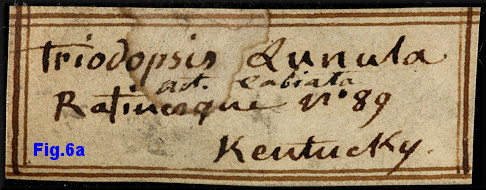 Triodopsis Lunula
act. Labiata
Rafinesque No 89
Kentucky.
Fig.6a